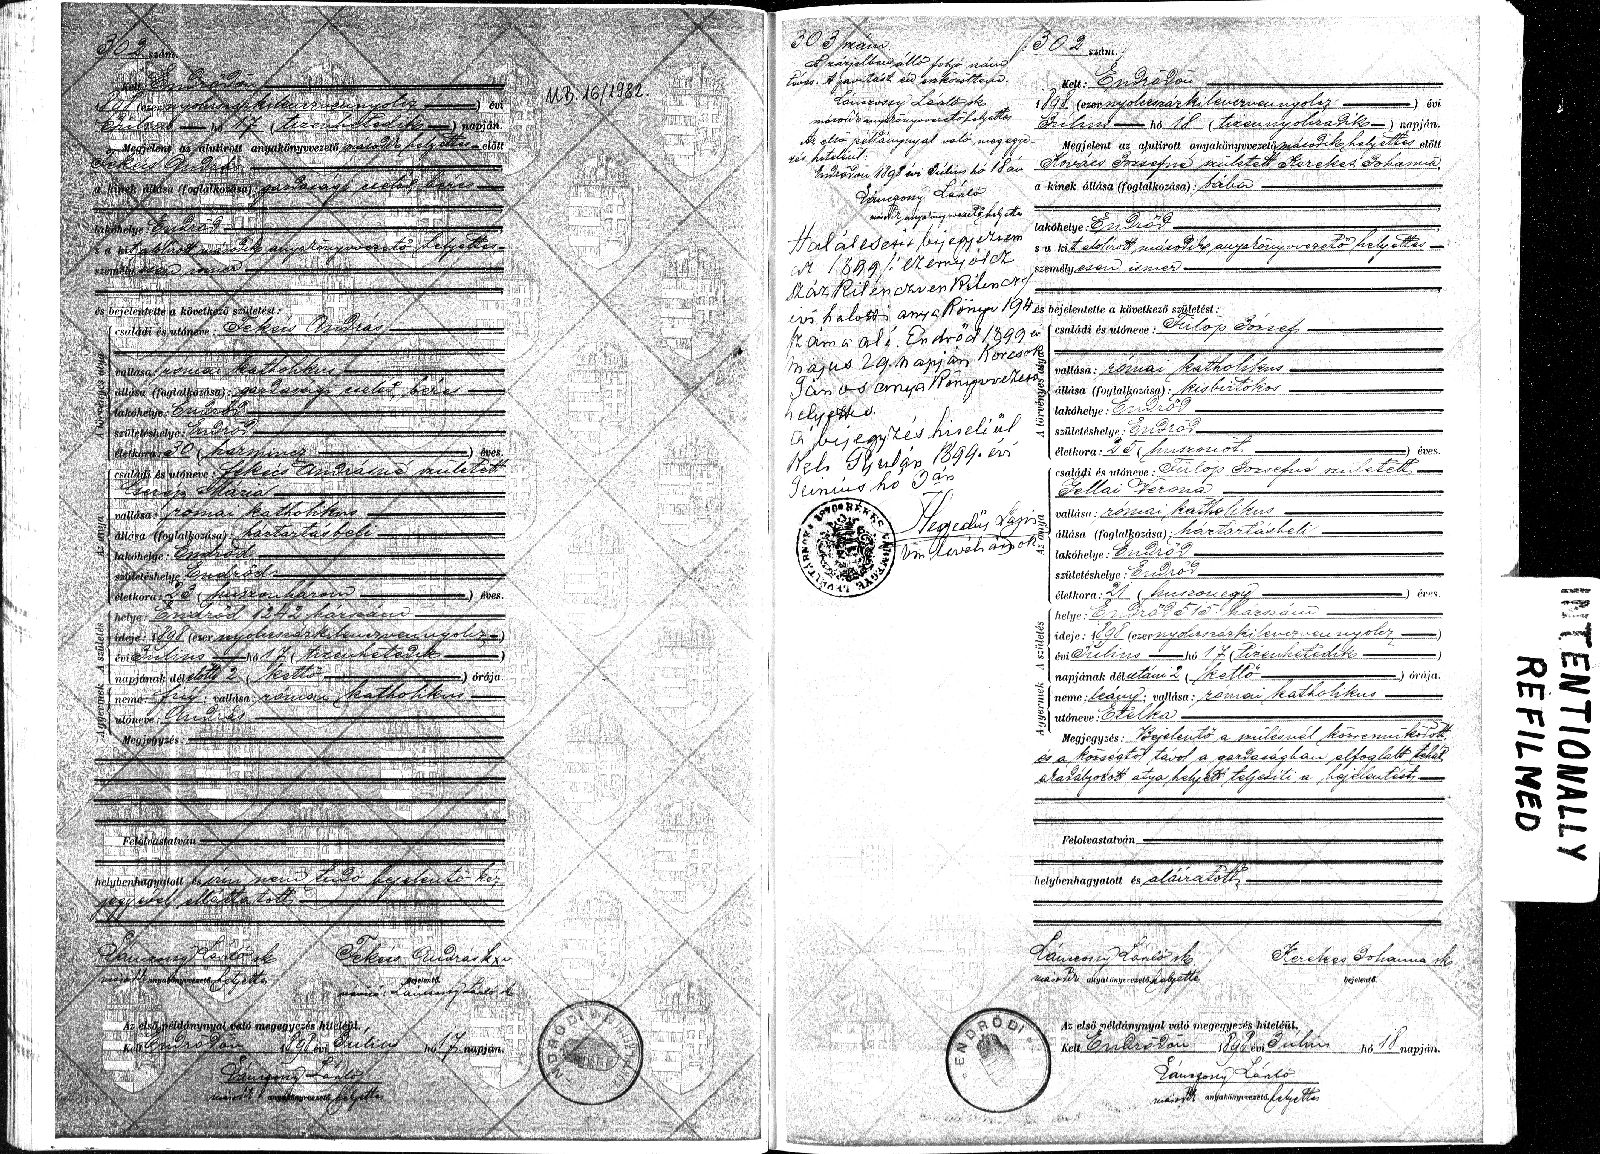 302 szám.
Kelt Endrődön
1898 (ezernyolcszázkilenczvennyolcz) évi
Július hó 17 (tizenhetedik) napján.
Megjelent az alulirott anyakönyvvezető második helyettes előtt
a kinek állása (foglalkozása): gazdasági cseléd, béres
lakóhelye: Endrőd
s a kit alulirott második anyakönyvvezető helyettes
személyesen ismer
és bejelentette a következő születést:
családi és utóneve: András
vallása: római katholikus
állása (foglalkozása): gazdasági cseléd, béres
lakóhelye: Endrőd
születéshelye: Endrőd
életkora: 30 (harmincz) éves.
családi és utóneve: Andrásné született
Mária
vallása: római katholikus
állása (foglalkozása): háztartásbeli
lakóhelye: Endrőd
születéshelye: Endrőd
életkora: 23 (huszonhárom) éves.
helye: Endrőd 1242 házszám
ideje: 1898 (ezernyolcszázkilenczvennyolcz)
évi Július hó 17 (tizenhetedik)
napjának délelőtt 2 (kettő) órája
neme: fiú; vallása: római katholikus
utóneve: András
Megjegyzés:
Felolvastatván
helybenhagyatott és írni nem tudó bejelentő kéz
jegyével elláttatott
Lánczony László sk
második anyakönyvvezető helyettes
András
bejelentő.
Lánczony László sk
Az első példánynyal való megegyezés hiteléül,
Kelt Endrődön 1898 évi Július hó 17 napján.
Lánczony László
második anyakönyvvezető helyettes
MB. 16/1982.
ENDRŐDI
303 szám
A zárjelben álló felső szám
téves. A javítást én eszközöltem.
Lánczony László sk
második anyakönyvvezető helyettes
Az első példánynyal való megegye-
zés hiteléül.
Endrődön 1898 évi Július hó 18 án
Lánczony László
második anyakönyvvezető helyettes
Halálesete bejegyezve
az 1899 / ezernyolcz
százkilenczvenkilencz /
évi halotti anyakönyv 194
szám alá. Endrőd 1899 évi
május 29. napján Korcsok
János anyakönyvvezető
helyettes.
A bejegyzés hiteléül
Kelt Gyulán 1899. évi
Június hó 3án
Hegedűs Lajos
302 szám.
Kelt: Endrődön
1898 (ezernyolczszázkilenczvennyolcz) évi
Július hó 18 (tizennyolczadik) napján.
Megjelent az alulirott anyakönyvvezető második helyettes előtt
Kovács Józsefné született Kerekes Johanna,
a kinek állása (foglalkozása): bába
lakóhelye: Endrőd
s a kit alulirott második anyakönyvvezető helyettes
személyesen ismer
és bejelentette a következő születést:
A törvényes atya
családi és utóneve: Fülöp József
vallása: római katholikus
állása (foglalkozása): kisbirtokos
lakóhelye: Endrőd
születéshelye: Endrőd
életkora: 25 (huszonöt) éves.
Az anya
családi és utóneve: Fülöp Józsefné született
Gellai Verona
vallása: római katholikus
állása (foglalkozása): háztartásbeli
lakóhelye: Endrőd
születéshelye: Endrőd
életkora: 21 (huszonegy) éves.
A születés
helye: Endrőd 515 házszám
ideje: 1898 (ezernyolcszázkilenczvennyolcz)
évi Július hó 17 (tizenhetedik)
napjának délután 2 (kettő) órája.
A gyermek
neme: leány; vallása: római katholikus
utóneve: Etelka
Megjegyzés: Bejelentő a szülésnél közreműködött
és a községtől távol a gazdaságban elfoglalt tehát
akadályozott atya helyett teljesíti a bejelentést.
Felolvastatván
helybenhagyatott és aláíratott.
Lánczony László sk
második anyakönyvvezető helyettes
Kerekes Johanna sk
bejelentő.
Az első példánynyal való megegyezés hiteléül,
Kelt Endrődön 1898 évi Július hó 18 napján.
Lánczony László
második anyakönyvvezető helyettes
ENDRŐDI
INTENTIONALLY
REFILMED